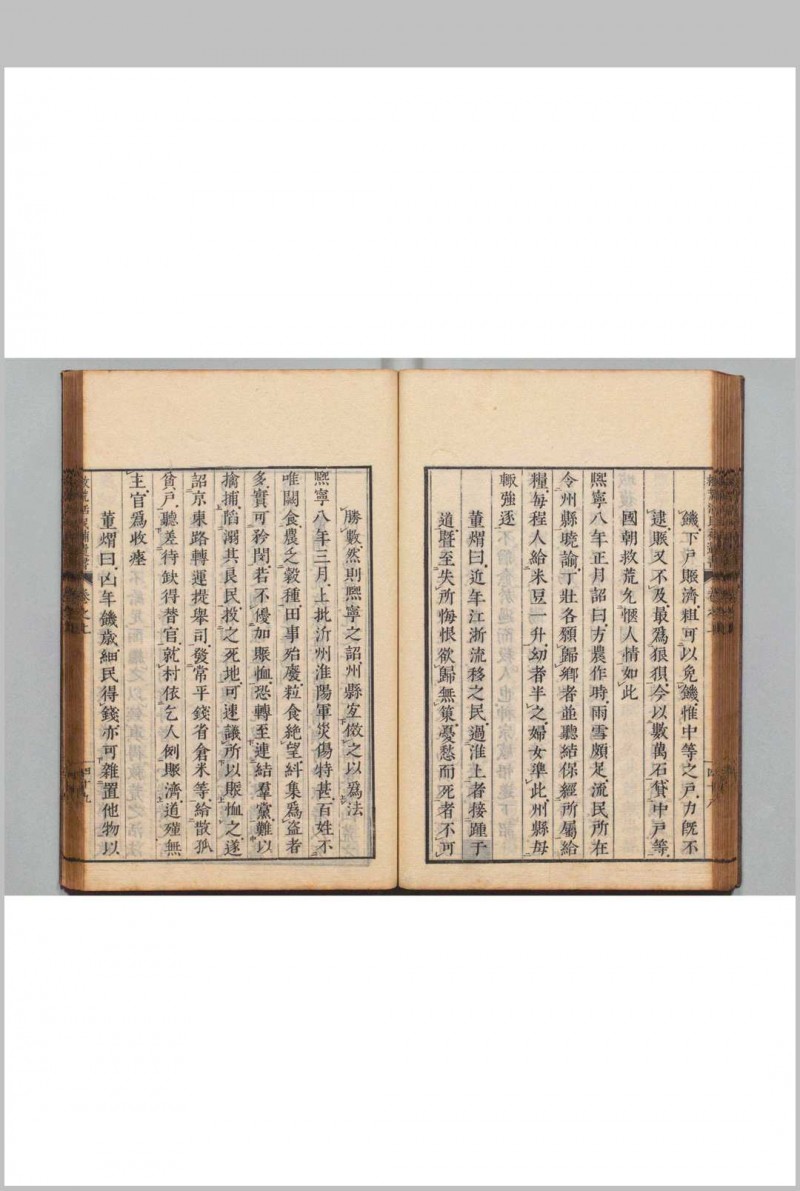 饑下戶賑濟粗可以免饑惟中等之戶力旣不
逮賑又不及最爲狼狽今以數萬石貸中戶等
國朝救荒允愜人情如此
熙寧八年正月詔曰方農作時雨雪頗足流民所在
令州縣曉諭丁壯各願歸鄉者並聽結保經所屬給
糧每程人給米豆一升幼者半之婦女準此州縣毋
輙強逐
董煟曰近年江浙流移之民過淮上者接踵于
道曁至失所悔恨欲歸無策憂愁而死者不可
勝數然則熙寧之詔州縣宜倣之以爲法
熙寧八年三月上批沂州淮陽軍災傷特甚百姓不
唯闕食農乏穀種田事殆廢粒食絕望糾集爲盜者
多實可矜閔若不優加賑恤恐轉至連結羣黨難以
擒捕陷溺其良民投之死地可速議所以賑恤之遂
詔京東路轉運提舉司發常平錢省倉米等給散孤
貧戶聽差待缺得替官就村依乞人例賑濟道殣無
主官爲收瘞
董煟曰凶年饑歲細民得錢亦可雜置他物以